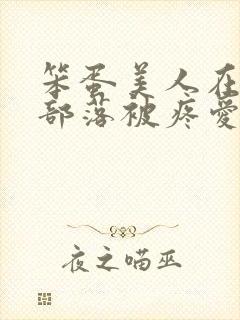 笨蛋美人在
部落被疼爱
夜之喵巫